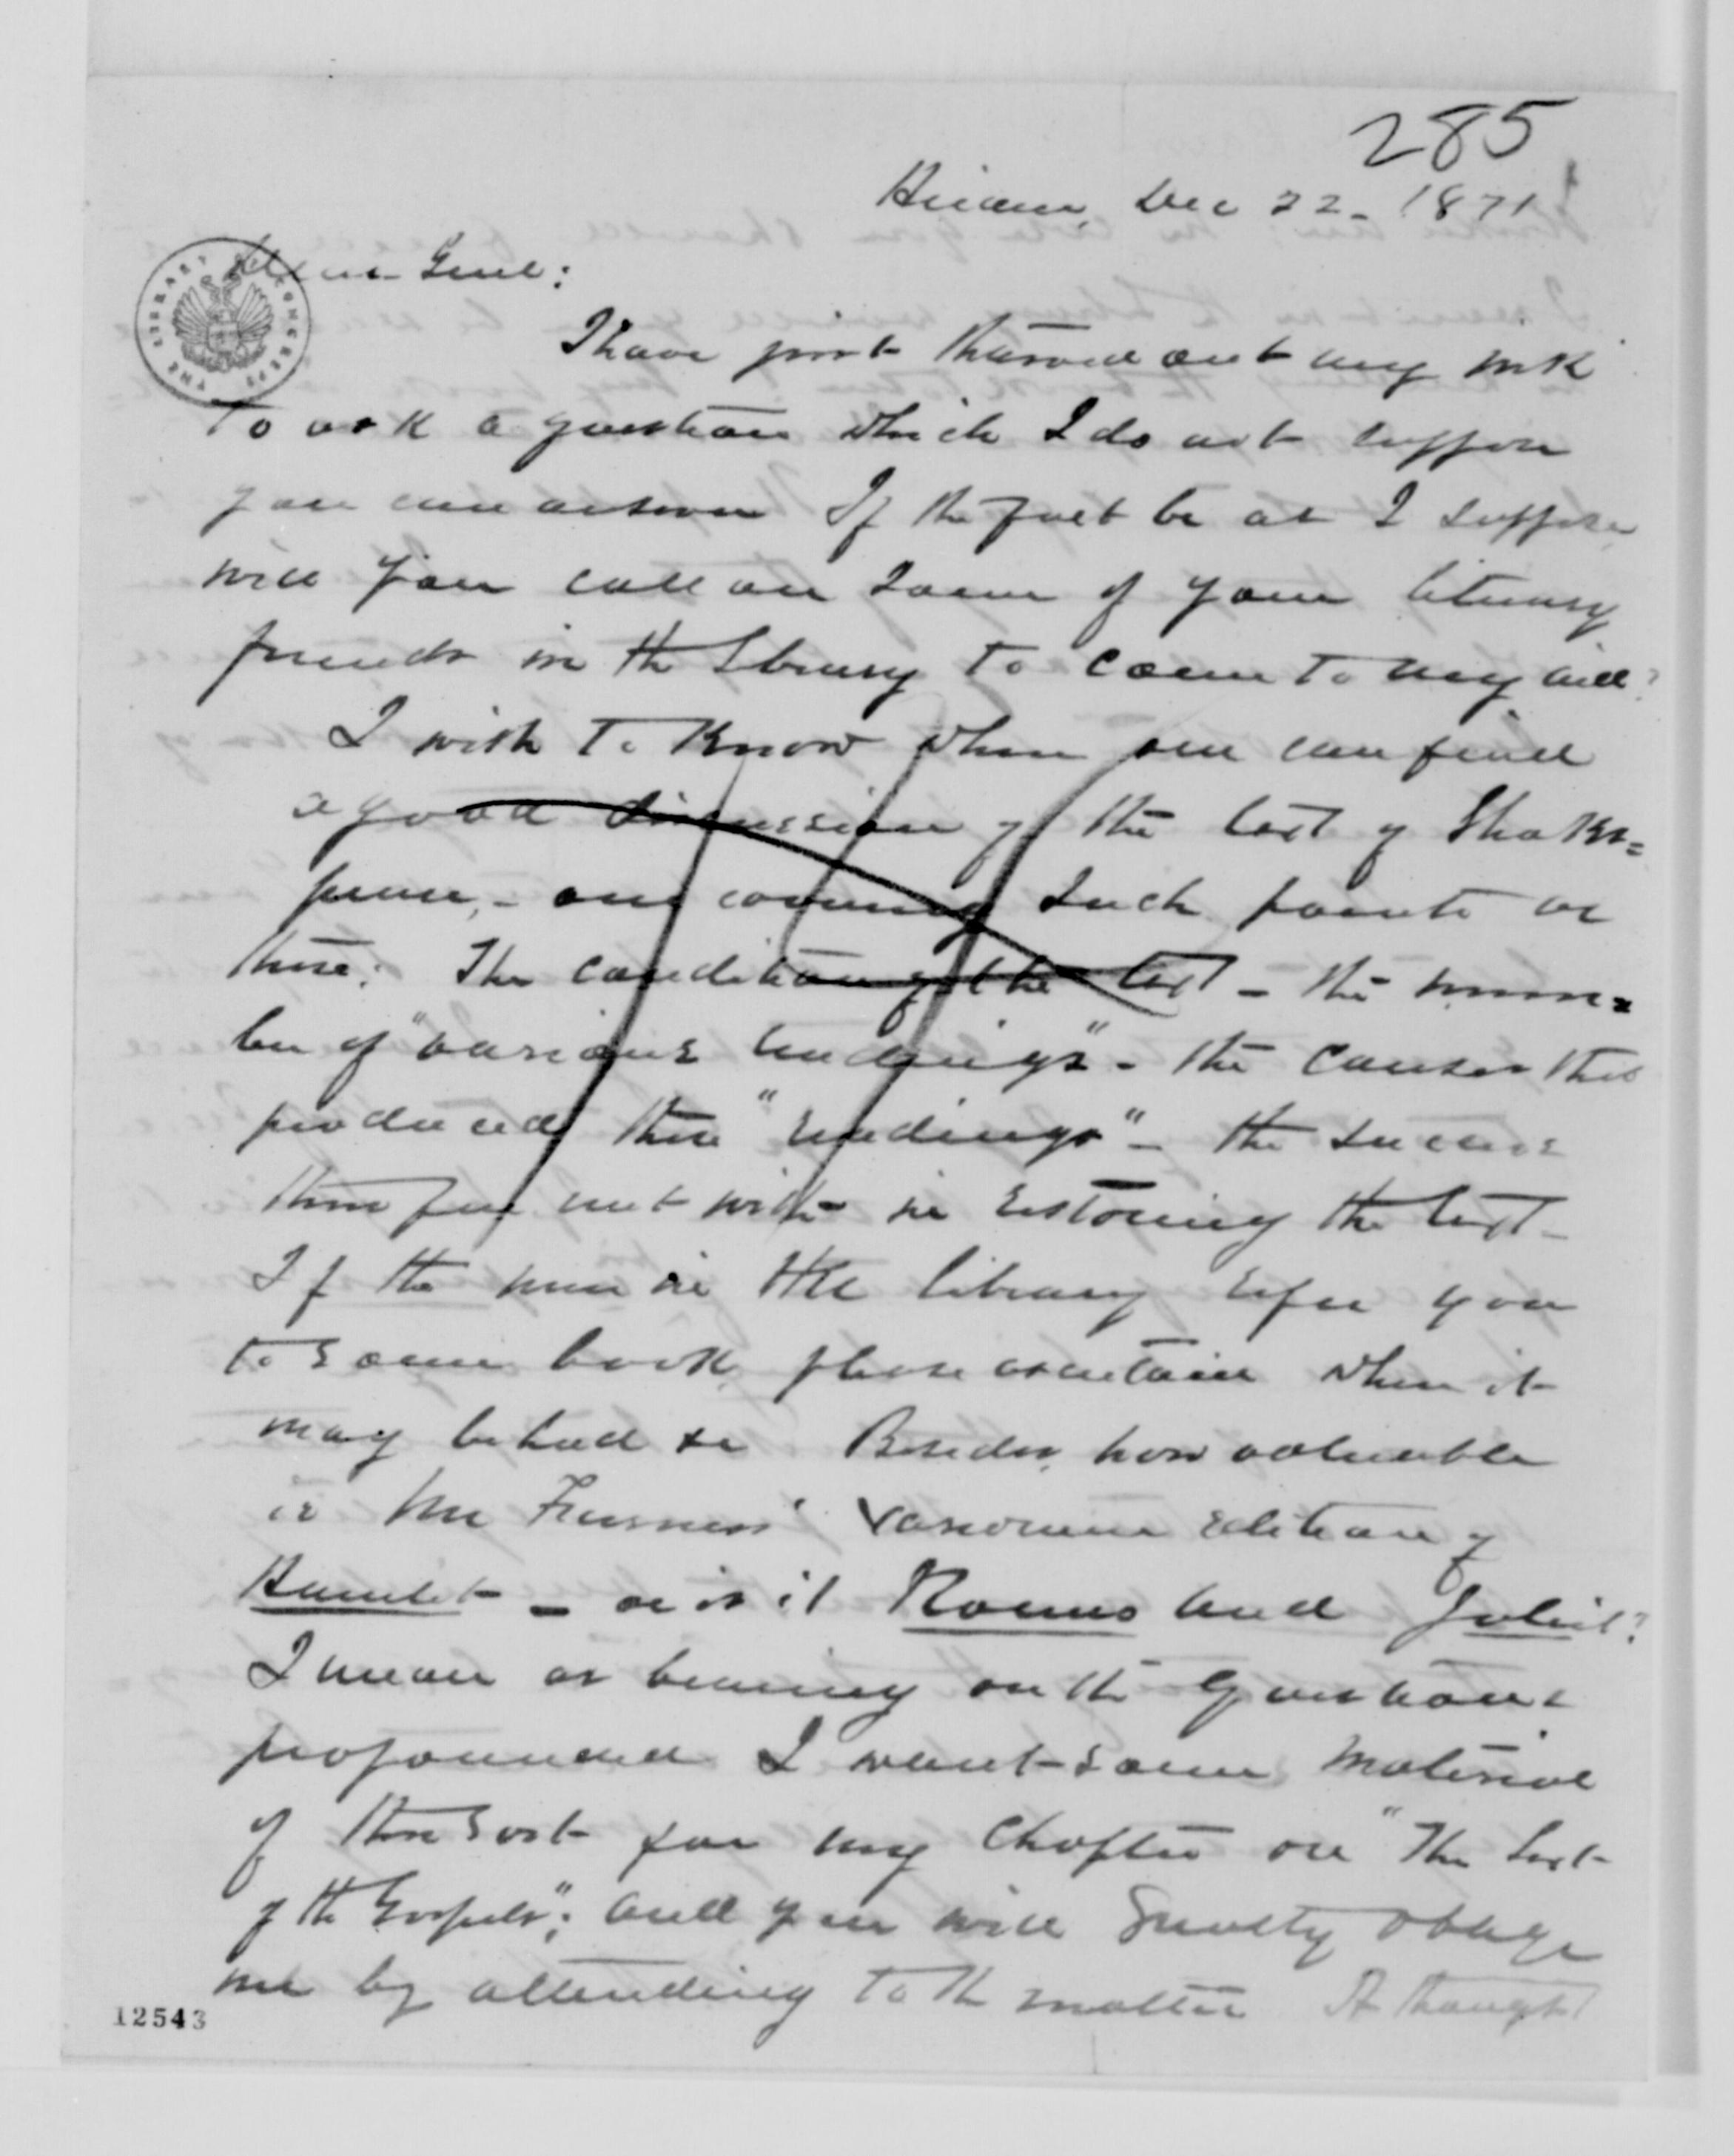 285
Hiram, Dec 22. 1871
Dear Genl:
I have just thawed out my ink
to ask a question which I do not suppose
you can answer If the fact be as I suppose
will you call on some of your literary
friends in the library to come to my aid?
I wish to know where one can find
a good discussion of the text of Shakes=
peare,- one covering such points as
these: The condition of the text - the num=
ber of "various readings" - the causes that
produced these "readings" - the success
thus far met with in restoring the text -
If the men in the library refer you
to some book please ascertain where it
may be had &c Besides, how valuable
is Mr Furness' Variorum edition of
Hamlet - or is it Romeo and Juliet?
I mean as bearing on the questions
propounded I want some material
of this sort for my chapter on "The Text
of the Gospels"; and you will greatly oblige
me by attending to the matter A thought
12543
THE LIBRARY OF CONGRESS